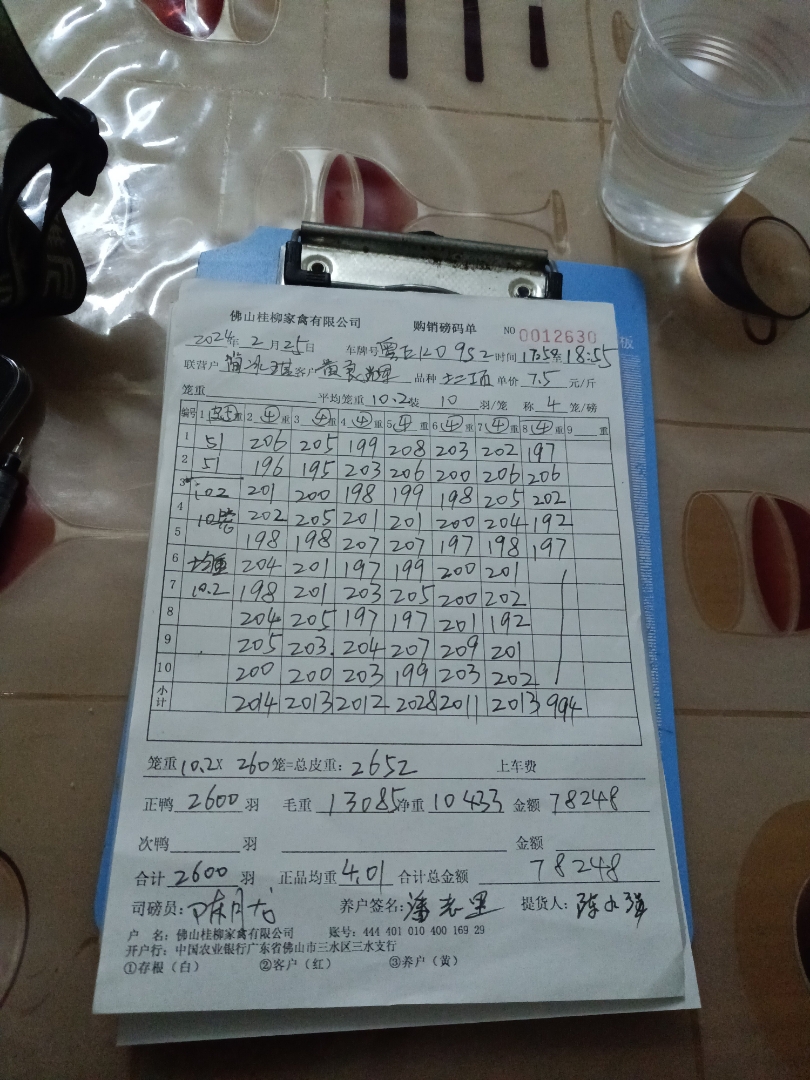 佛山桂柳家禽有限公司 购销磅码单 NO 0012630
2024年2月25日 车牌号 952 时间 17:54至18:55
联营户 客户 黄良辉 品种 土二项 单价 7.5 元/斤
笼重 平均笼重 10.2 装 10 羽/笼 称 4 笼/磅
编号 1 皮5重 2 ④重 3 ④重 4 ④重 5 ④重 6 ④重 7 ④重 8 ④重 9 重
1 51 206 205 199 208 203 202 197
2 51 196 195 203 206 200 206 206
3 10.2 201 200 198 199 198 205 202
4 10笼 202 205 201 201 200 204 192
5 198 198 207 207 197 198 197
6 均重 204 201 197 199 200 201
7 10.2 198 201 203 205 200 202
8 204 205 197 197 201 192
9 205 203 204 207 209 201
10 200 200 203 199 203 202
小计 2014 2013 2012 2028 2011 2013 994
笼重 10.2X 260笼=总皮重：2652 上车费
正鸭 2600 羽 毛重 13085 净重 10433 金额 78248
次鸭 羽 金额
合计 2600 羽 正品均重 4.01 合计总金额 78248
司磅员： 养户签名： 提货人：
户 名：佛山桂柳家禽有限公司 账号：444 401 010 400 169 29
开户行：中国农业银行广东省佛山市三水区三水支行
①存根（白） ②客户（红） ③养户（黄）